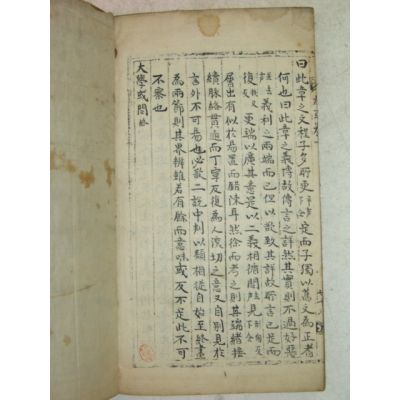 曰此章之文程子多所更定而子獨以舊文為正者
何也曰此章之義博故傳言之詳然其實則不過好惡
義利之兩端而已但以欲致其詳故所言已足而
復更端以廣其意是以二義相循間見
層出有似於易置而錯陳耳然徐而考之則其端緒接
續脉絡貫通而丁寧反復為人深切之意又自別見於
言外不可易也必欲二說中判以類相從自始至終畫
為兩節則其界辨雖若有餘而意味或反不足此不可
不察也
大學或問終